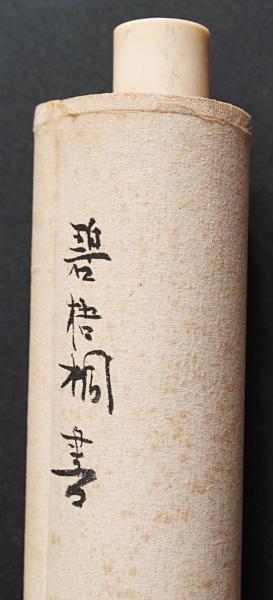 碧梧桐書